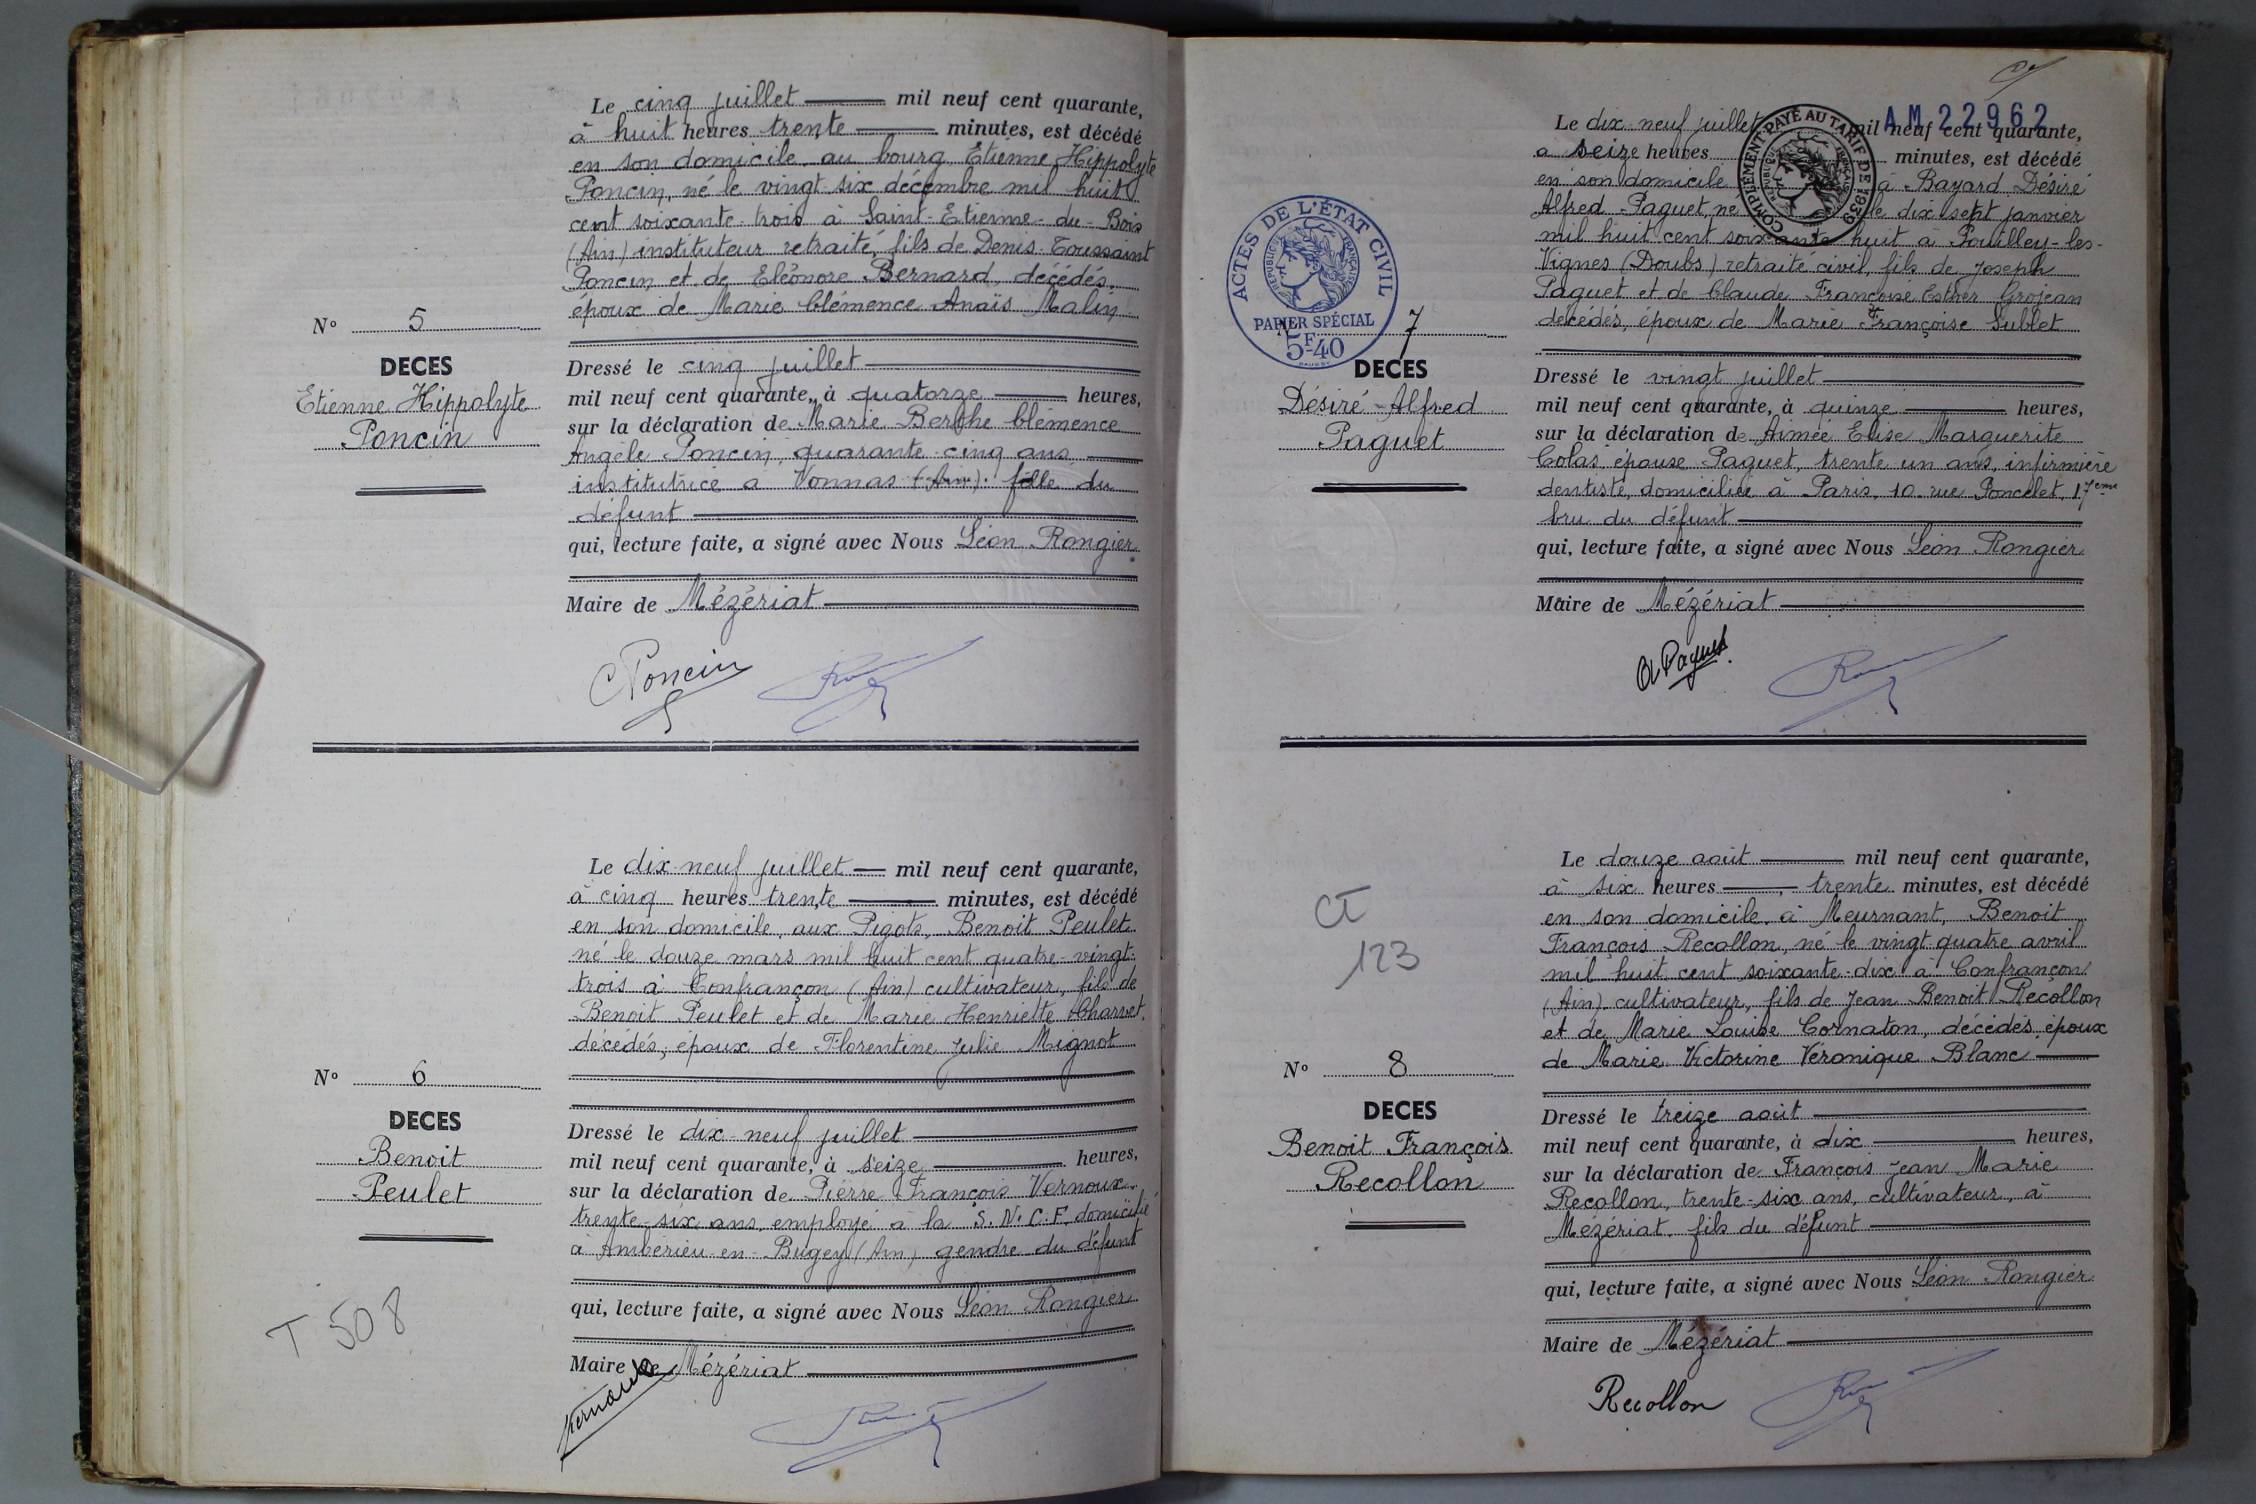 Le cinq juillet mil neuf cent quarante,
à huit heures trente minutes, est décédé
en son domicile, au bourg Etienne Hippolyte
Poncin, né le vingt-six décembre mil huit
cent soixante-trois à Saint-Etienne-du-Bois
(Ain) instituteur retraité, fils de Denis-Toussaint
Poncin et de Eléonore Bernard, décédés,
époux de Marie Clémence Anaïs Malin
N° 5
DECES
Etienne Hippolyte
Poncin
Dressé le cinq juillet
mil neuf cent quarante, à quatorze heures,
sur la déclaration de Marie Berthe Clémence
Angèle Poncin, quarante-cinq ans,
institutrice à Vonnas (Ain). fille du
défunt
qui, lecture faite, a signé avec Nous Léon Rongier
Maire de Mézériat
C Poncin
Le dix-neuf juillet mil neuf cent quarante,
à cinq heures trente minutes, est décédé
en son domicile, aux Pigots, Benoit Peulet
né le douze mars mil huit cent quatre-vingt-
trois à Confrançon (Ain) cultivateur, fils de
Benoit Peulet et de Marie Henriette Charvet,
décédés, époux de Florentine Julie Mignot
N° 6
DECES
Benoit
Peulet
T 508
Dressé le dix-neuf juillet
mil neuf cent quarante, à seize heures,
sur la déclaration de Pierre François Vernoux
trente-six ans, employé à la S.N.C.F. domicilié
à Ambérieu-en-Bugey (Ain) gendre du défunt
qui, lecture faite, a signé avec Nous Léon Rongier
Maire de Mézériat
Vernoux
AM 22962
COMPLEMENT PAYÉ AU TARIF DE 1939
Le dix-neuf juillet mil neuf cent quarante,
à seize heures minutes, est décédé
en son domicile à Bayard Désiré
Alfred Paguet, né le dix-sept janvier
mil huit cent soixante huit à Pouilley-les-
Vignes (Doubs) retraité civil, fils de Joseph
Paguet et de Claude Françoise Esther Grojean
décédés, époux de Marie Françoise Sublet
ACTES DE L'ÉTAT CIVIL
RÉPUBLIQUE FRANÇAISE
PAPIER SPÉCIAL
5F40
7
DECES
Désiré-Alfred
Paguet
Dressé le vingt juillet
mil neuf cent quarante, à quinze heures,
sur la déclaration de Aimée Elise Marguerite
Colas épouse Paguet, trente un ans, infirmière
dentiste, domiciliée à Paris, 10 rue Poncelet, 17eme
bru du défunt
qui, lecture faite, a signé avec Nous Léon Rongier
Maire de Mézériat
Paguet
Le douze août mil neuf cent quarante,
à six heures trente minutes, est décédé
en son domicile, à Meurnant, Benoit
François Recollon, né le vingt-quatre avril
mil huit cent soixante-dix à Confrançon
(Ain) cultivateur, fils de Jean Benoit Recollon
et de Marie Louise Cornaton, décédés, époux
de Marie Victorine Véronique Blanc
CT
123
N° 8
DECES
Benoit François
Recollon
Dressé le treize août
mil neuf cent quarante, à dix heures,
sur la déclaration de François Jean Marie
Recollon, trente-six ans, cultivateur, à
Mézériat, fils du défunt
qui, lecture faite, a signé avec Nous Léon Rongier
Maire de Mézériat
Recollon